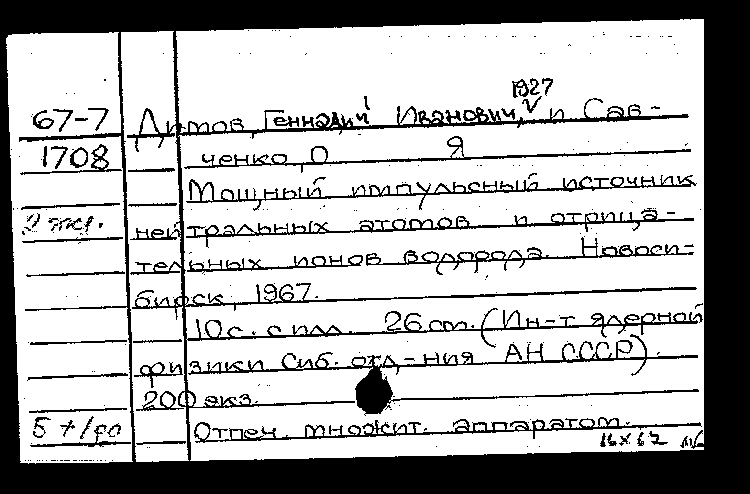 1927
67-7 Димов, Геннадий Иванович, и Сав-
1708 ченко, О Я
Мощный импульсный источник
2 экз. нейтральных атомов и отрица-
тельных ионов водорода. Новоси-
бирск, 1967.
10 с. с илл. 26 см. (Ин-т ядерной
физики Сиб. отд-ния АН СССР).
200 экз.
Отпеч. множит. аппаратом.
16 X 67